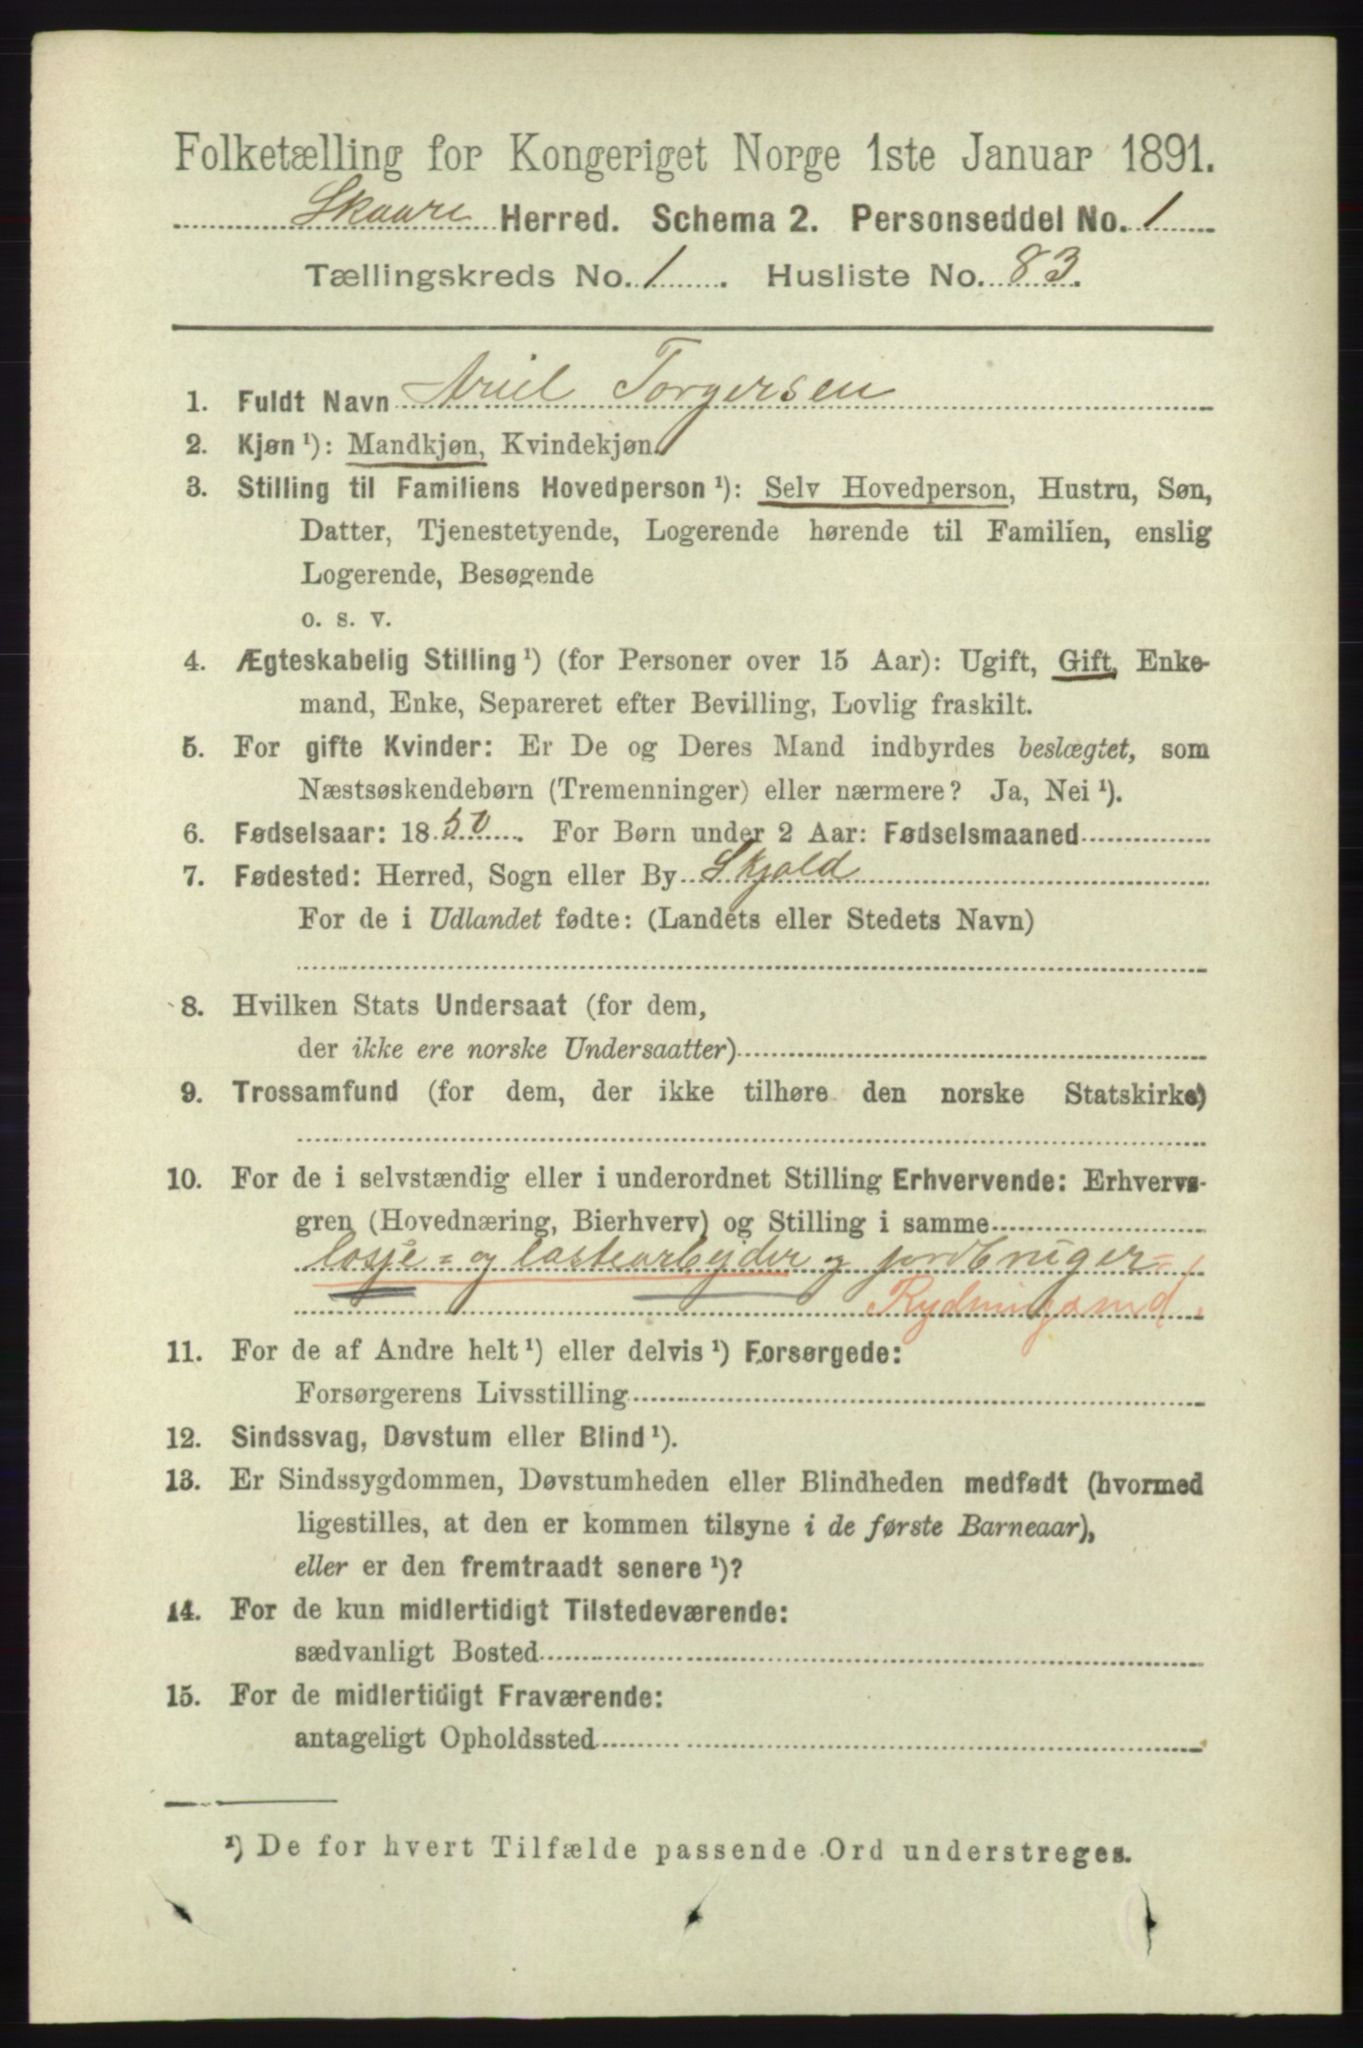 Folketælling for Kongeriget Norge 1ste Januar 1891.
Skaare Herred. Schema 2. Personseddel No. 1
Tællingskreds No. 1. Husliste No. 83.
1. Fuldt Navn Ariel Torgersen
2. Kjøn ¹): Mandkjøn, Kvindekjøn.
3. Stilling til Familiens Hovedperson ¹): Selv Hovedperson, Hustru, Søn,
Datter, Tjenestetyende, Logerende hørende til Familien, enslig
Logerende, Besøgende
o. s. v.
4. Ægteskabelig Stilling ¹) (for Personer over 15 Aar): Ugift, Gift, Enke-
mand, Enke, Separeret efter Bevilling, Lovlig fraskilt.
5. For gifte Kvinder: Er De og Deres Mand indbyrdes beslægtet, som
Næstsøskendebørn (Tremenninger) eller nærmere? Ja, Nei ¹).
6. Fødselsaar: 1850. For Børn under 2 Aar: Fødselsmaaned
7. Fødested: Herred, Sogn eller By Skjold
For de i Udlandet fødte: (Landets eller Stedets Navn)
8. Hvilken Stats Undersaat (for dem,
der ikke ere norske Undersaatter)
9. Trossamfund (for dem, der ikke tilhøre den norske Statskirke)
10. For de i selvstændig eller i underordnet Stilling Erhvervende: Erhvervs-
gren (Hovednæring, Bierhverv) og Stilling i samme
losje= og lastearbejder og jordbruger=
Rydningsmd.
11. For de af Andre helt ¹) eller delvis ¹) Forsørgede:
Forsørgerens Livsstilling
12. Sindssvag, Døvstum eller Blind ¹).
13. Er Sindssygdommen, Døvstumheden eller Blindheden medfødt (hvormed
ligestilles, at den er kommen tilsyne i de første Barneaar),
eller er den fremtraadt senere ¹)?
14. For de kun midlertidigt Tilstedeværende:
sædvanligt Bosted
15. For de midlertidigt Fraværende:
antageligt Opholdssted
¹) De for hvert Tilfælde passende Ord understreges.